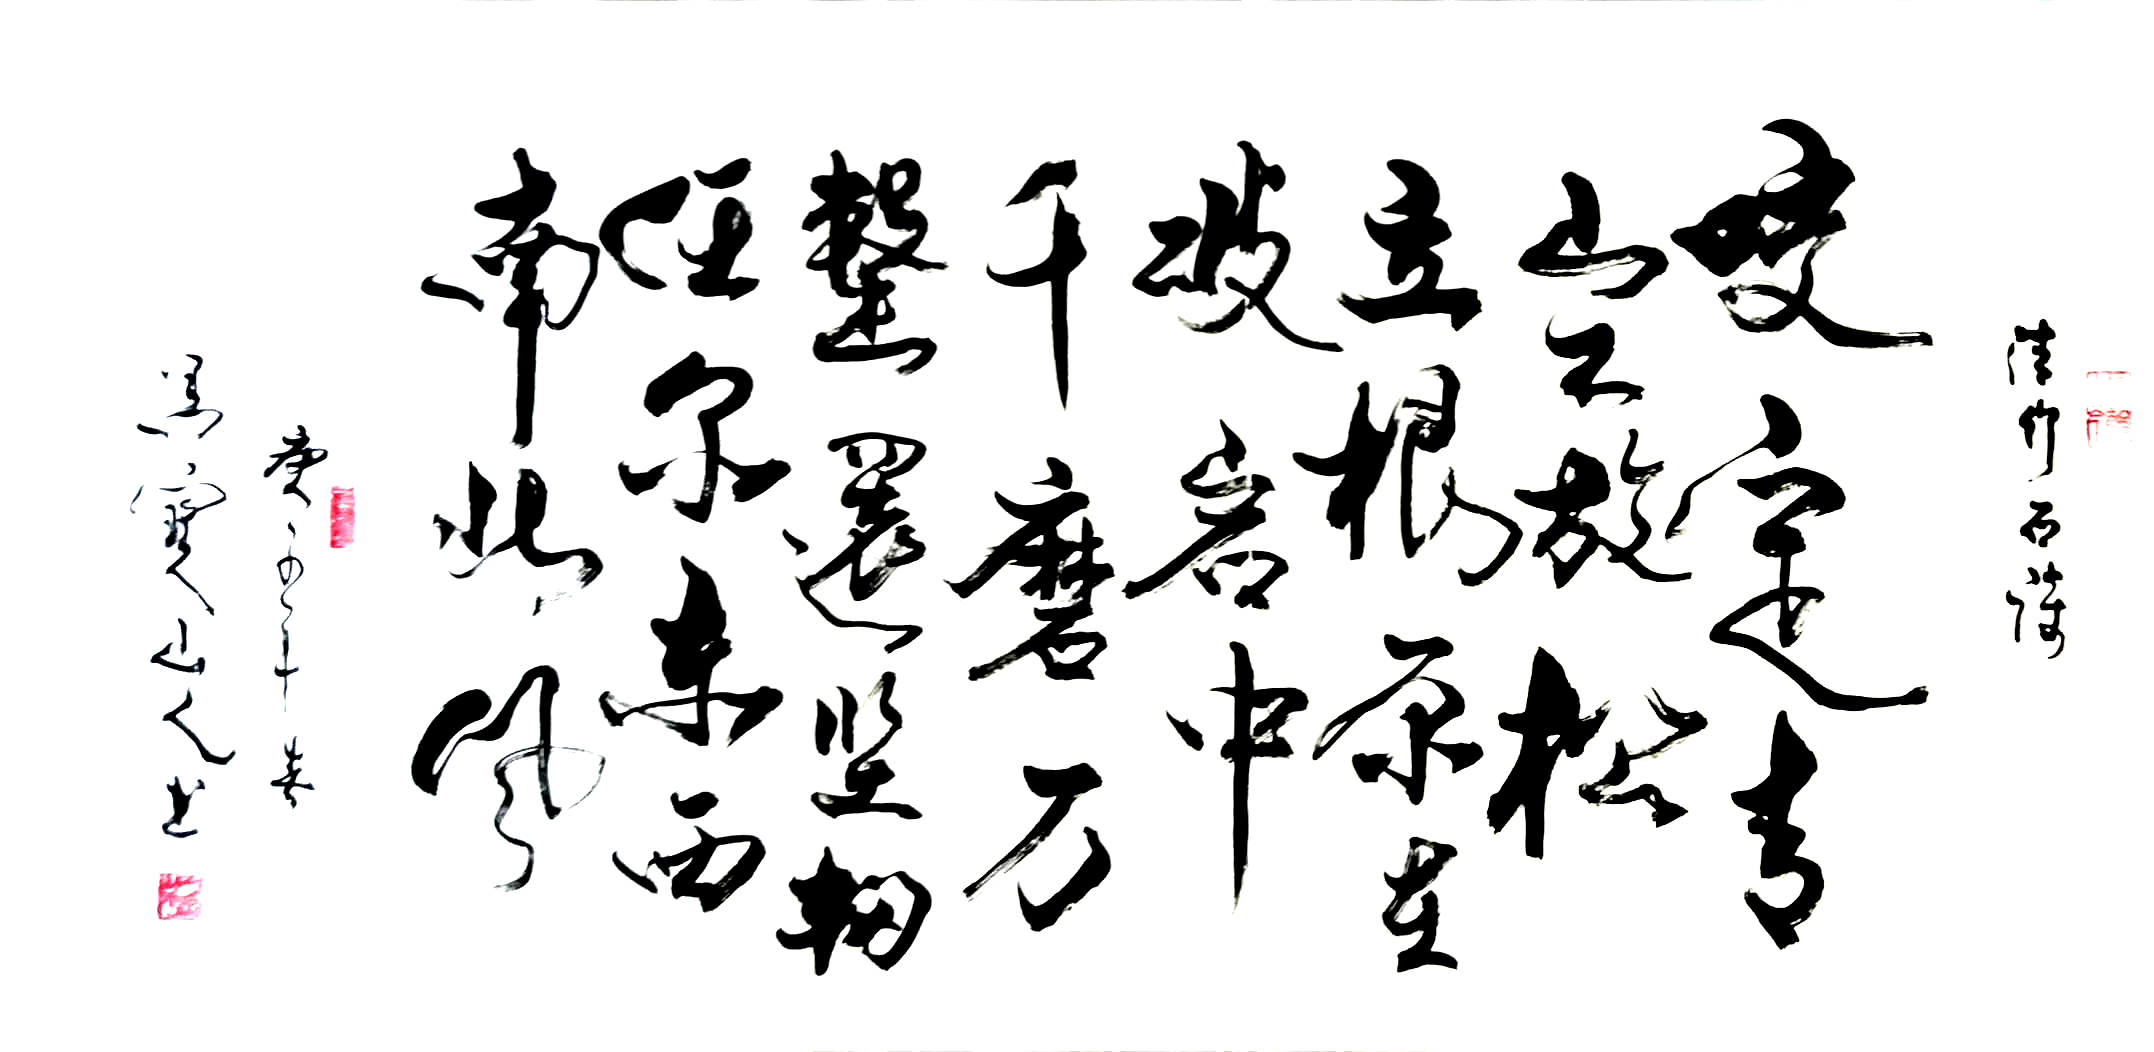 竹石
咬定青
山不放松
立根原在
破岩中
千磨万
擊還坚韧
任尔东西
南北风
庚子年春
寶山人书